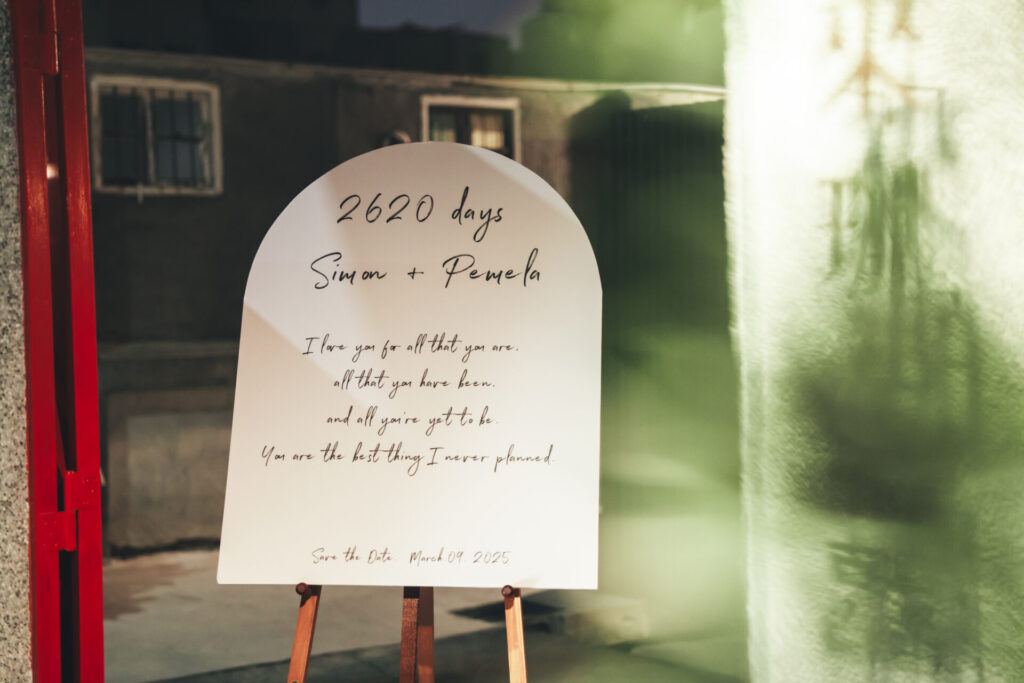 2620 days
Simon + Pemela
I love you for all that you are,
all that you have been,
and all you're yet to be.
You are the best thing I never planned.
Save the Date. March 09. 2025